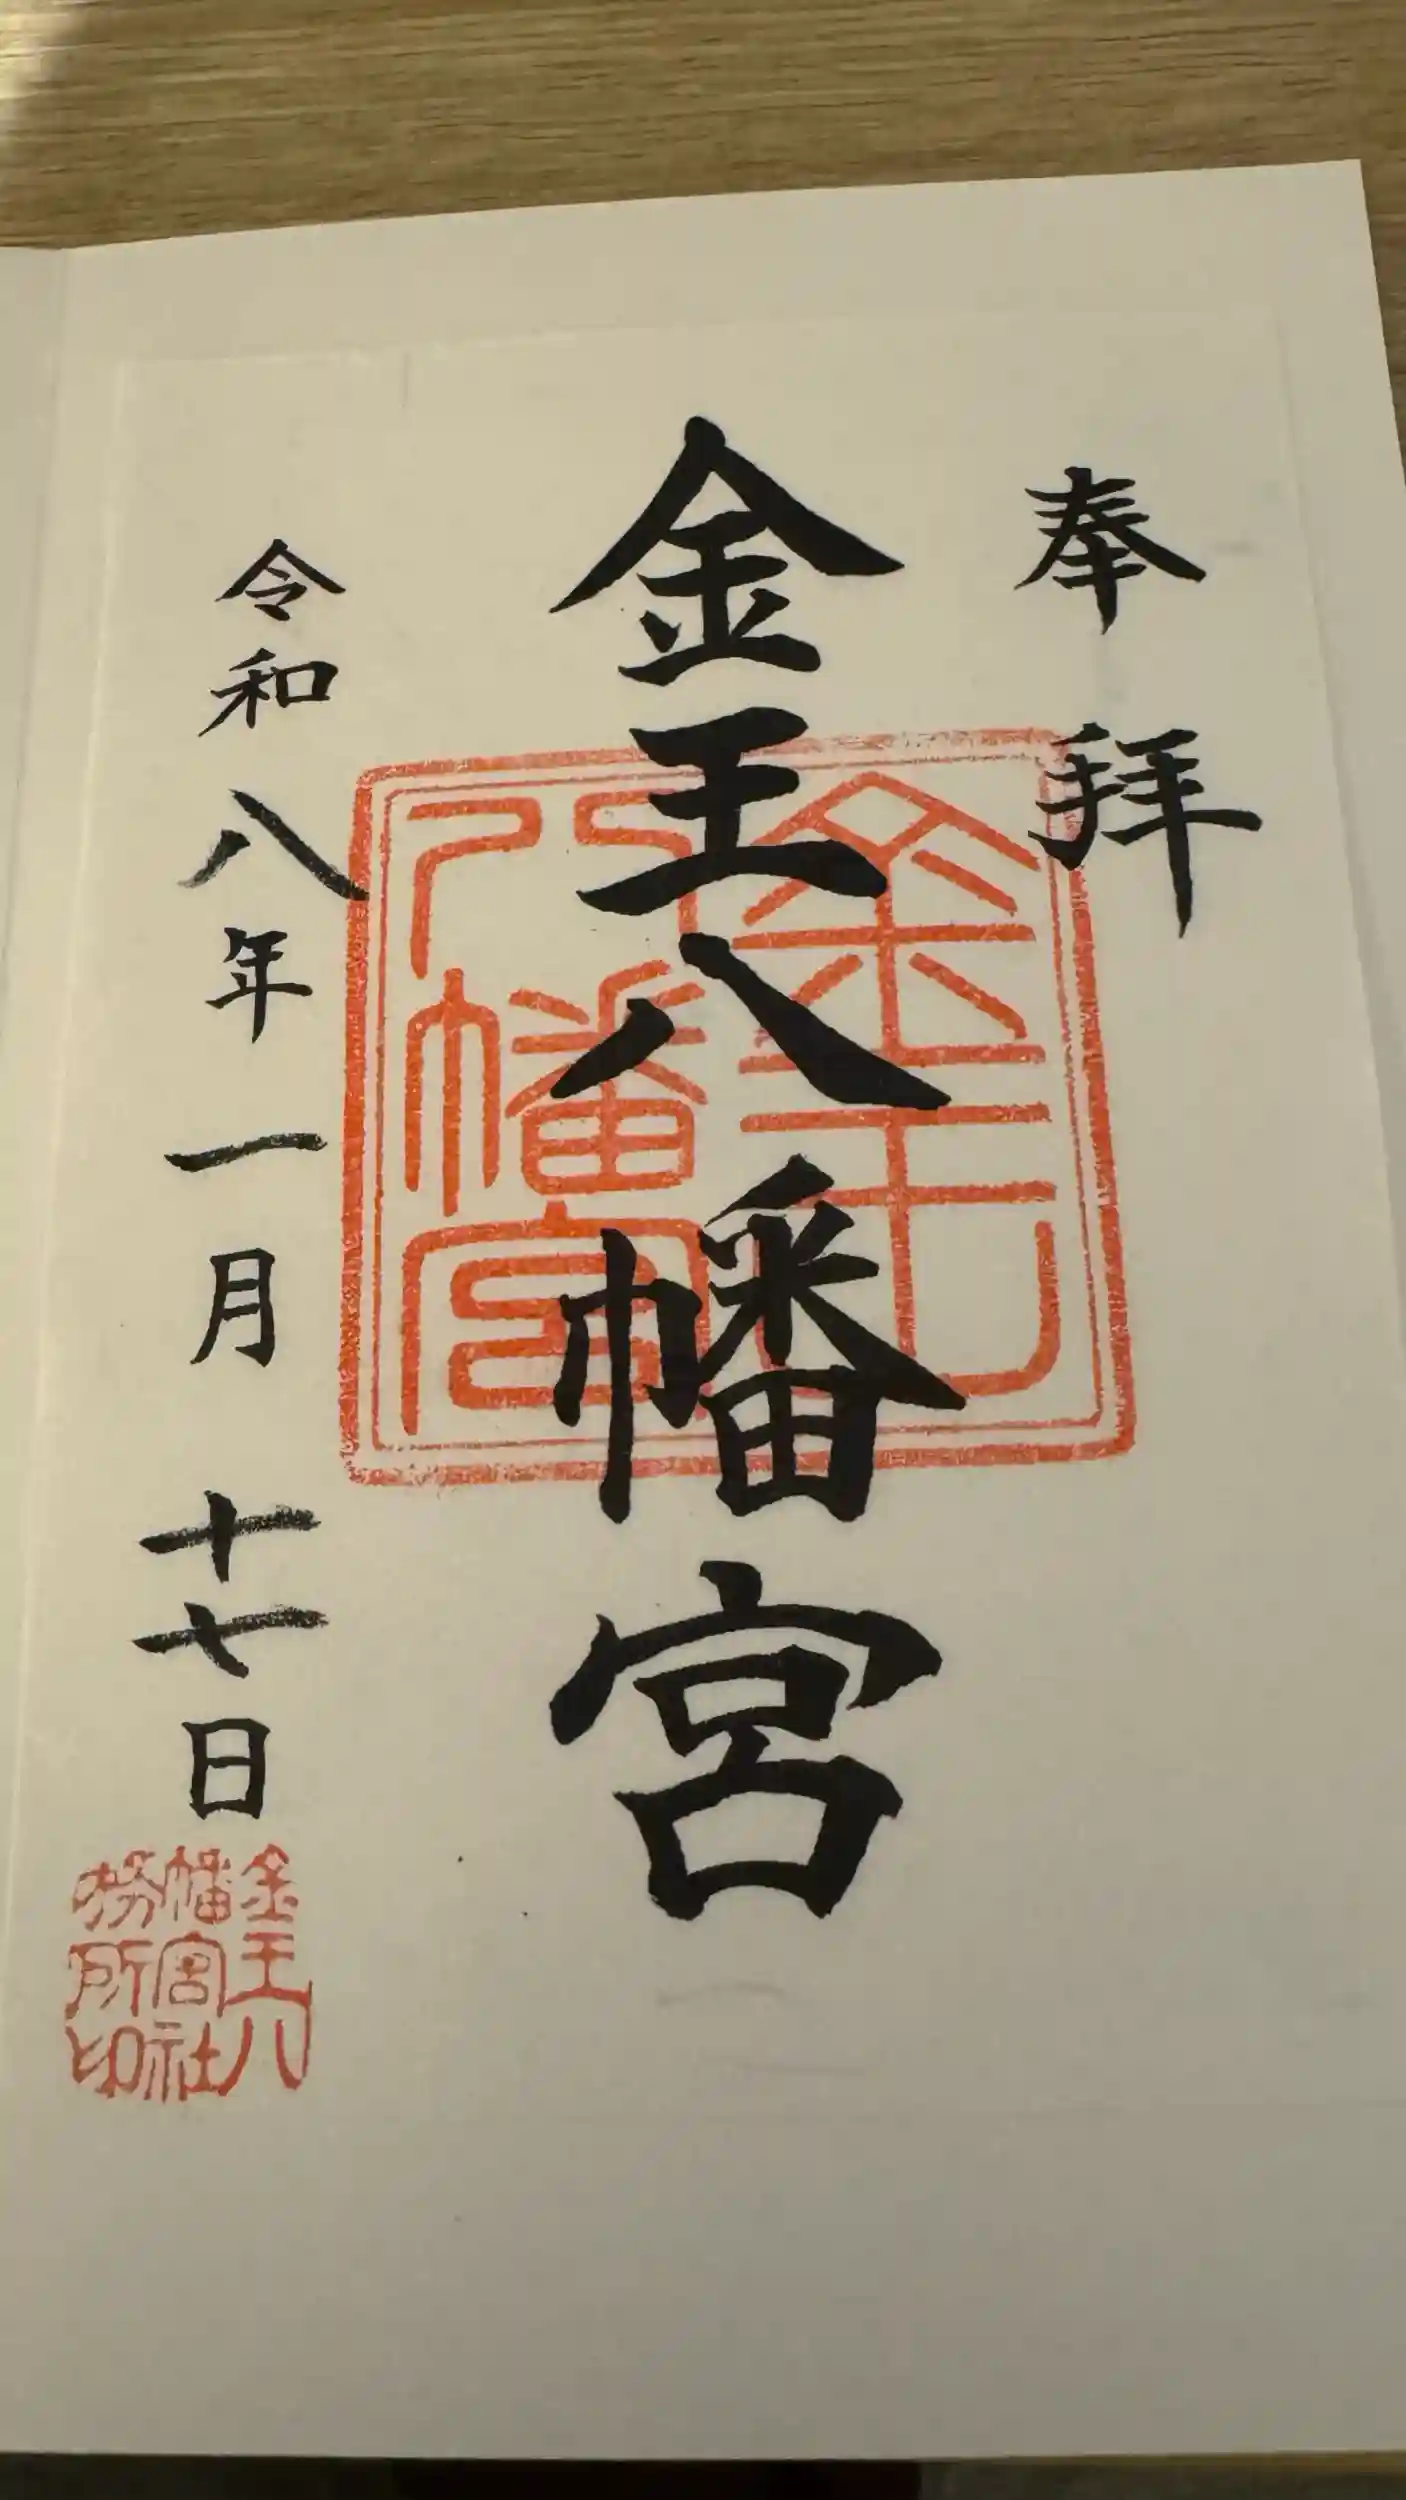 奉拝
金王八幡宮
令和八年一月十七日
金王八幡宮
金王八
幡宮社
務所印